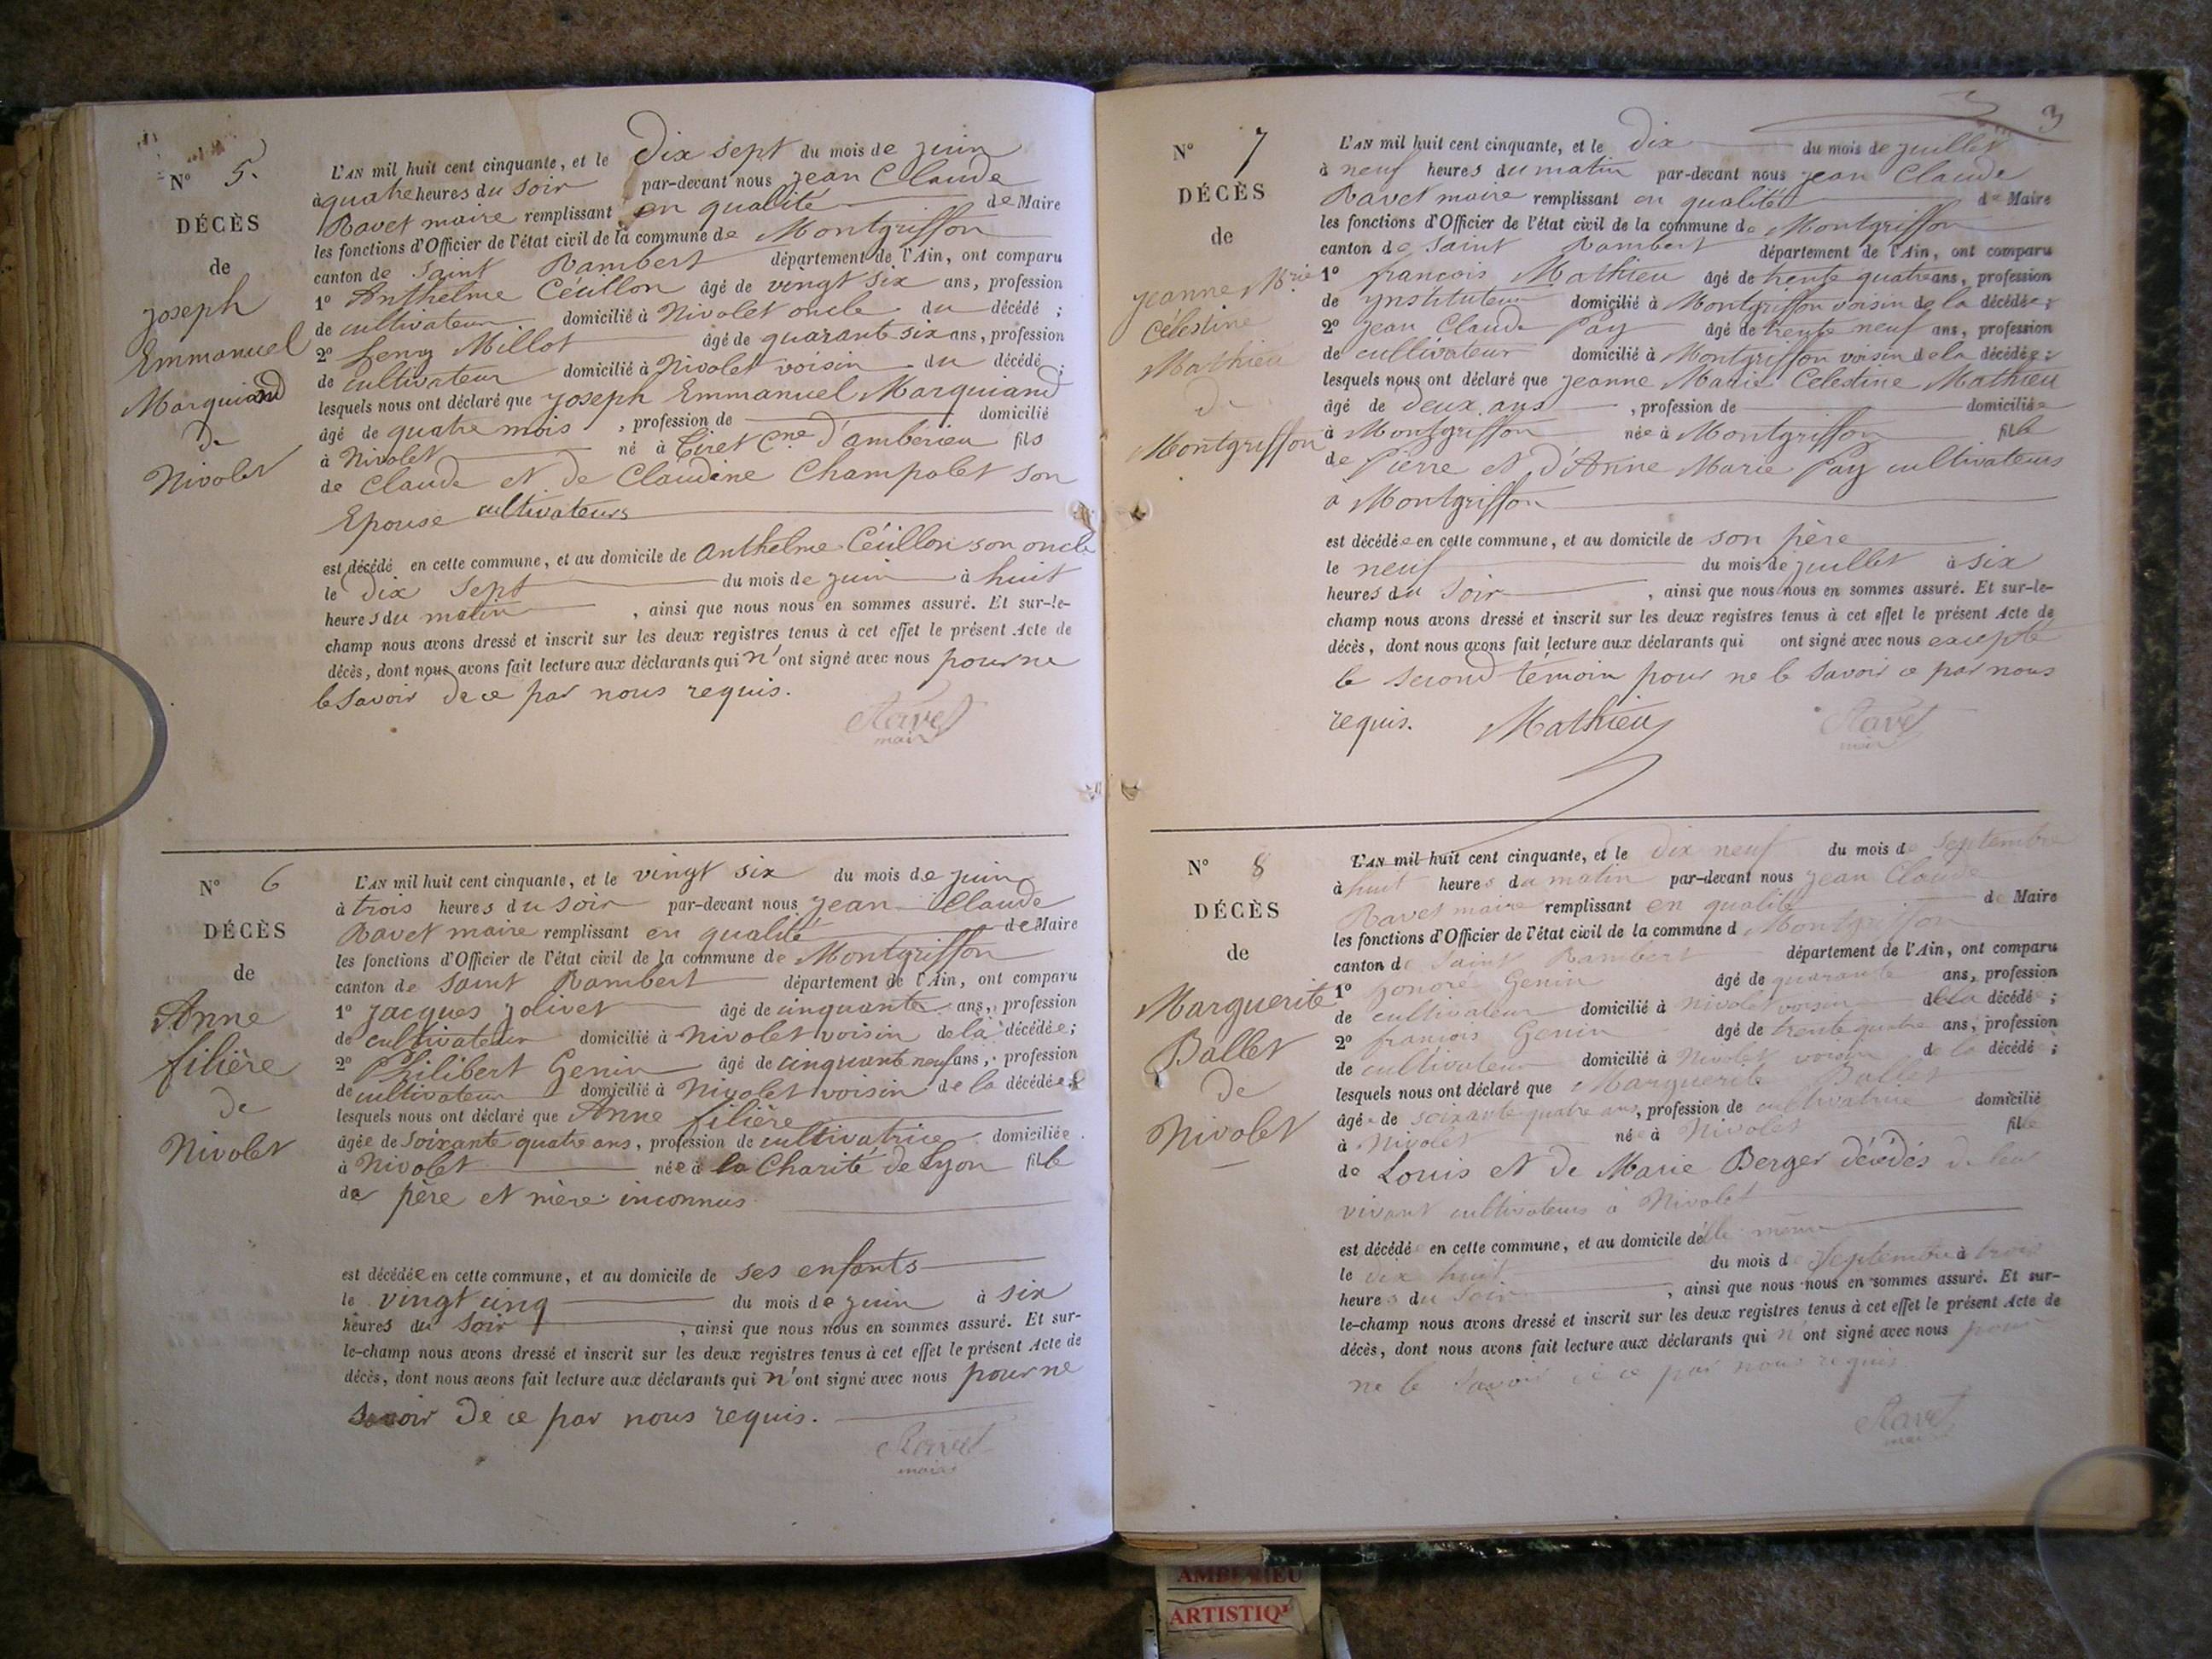 N° 5.
DÉCÈS
de
Joseph
Emmanuel
Marquiand
de
Nivolet
L'AN mil huit cent cinquante, et le Dix sept du mois de juin
à quatre heures du soir par-devant nous jean Claude
Ravet maire remplissant en qualité de Maire
les fonctions d'Officier de l'état civil de la commune de Montgriffon
canton de Saint Rambert département de l'Ain, ont comparu
1° Anthelme Céuillon âgé de vingt six ans, profession
de cultivateur domicilié à Nivolet oncle du décédé ;
2° Millot âgé de quarante six ans, profession
de cultivateur domicilié à Nivolet voisin du décédé ;
lesquels nous ont déclaré que joseph Emmanuel Marquiand
âgé de quatre mois , profession de domicilié
à Nivolet né à Tiret Cne d'ambérieu fils
de Claude et de Claudine Champolet son
Epouse cultivateurs
est décédé en cette commune, et au domicile de Anthelme Céuillon son oncle
le Dix Sept du mois de juin à huit
heures du matin , ainsi que nous nous en sommes assuré. Et sur-le-
champ nous avons dressé et inscrit sur les deux registres tenus à cet effet le présent Acte de
décès, dont nous avons fait lecture aux déclarants qui n'ont signé avec nous pour ne
le savoir de ce par nous requis.
Ravet
maire
N° 6
DÉCÈS
de
Anne
filière
de
Nivolet
L'AN mil huit cent cinquante, et le vingt six du mois de juin
à trois heures du soir par-devant nous jean Claude
Ravet maire remplissant en qualité de Maire
les fonctions d'Officier de l'état civil de la commune de Montgriffon
canton de Saint Rambert département de l'Ain, ont comparu
1° Jacques jolivet âgé de cinquante ans, profession
de cultivateur domicilié à Nivolet voisin de la décédée ;
2° Philibert Genin âgé de cinquante neuf ans, profession
de cultivateur domicilié à Nivolet voisin de la décédée ;
lesquels nous ont déclaré que Anne filière
âgée de soixante quatre ans, profession de cultivatrice domiciliée
à Nivolet née à la Charité de Lyon fille
de père et mère inconnus
est décédée en cette commune, et au domicile de ses enfants
le vingt cinq du mois de juin à six
heures du soir , ainsi que nous nous en sommes assuré. Et sur-
le-champ nous avons dressé et inscrit sur les deux registres tenus à cet effet le présent Acte de
décès, dont nous avons fait lecture aux déclarants qui n'ont signé avec nous pour ne
savoir de ce par nous requis.
Ravet
maire
3
N° 7
DÉCÈS
de
jeanne Mrie
Célestine
Mathieu
de
Montgriffon
L'AN mil huit cent cinquante, et le dix du mois de juillet
à neuf heures du matin par-devant nous jean Claude
Ravet maire remplissant en qualité de Maire
les fonctions d'Officier de l'état civil de la commune de Montgriffon
canton de Saint Rambert département de l'Ain, ont comparu
1° françois Mathieu âgé de trente quatre ans, profession
de ynstituteur domicilié à Montgriffon voisin de la décédée ;
2° jean Claude Pay âgé de trente neuf ans, profession
de cultivateur domicilié à Montgriffon voisin de la décédée ;
lesquels nous ont déclaré que jeanne Marie Celestine Mathieu
âgé de deux ans , profession de domiciliée
à Montgriffon née à Montgriffon fille
de Pierre et d'Anne Marie Pay cultivateurs
a Montgriffon
est décédée en cette commune, et au domicile de son père
le neuf du mois de juillet à six
heures du soir , ainsi que nous nous en sommes assuré. Et sur-le-
champ nous avons dressé et inscrit sur les deux registres tenus à cet effet le présent Acte de
décès, dont nous avons fait lecture aux déclarants qui ont signé avec nous excepté
le second témoin pour ne le savoir ce par nous
requis. Mathieu Ravet
maire
N° 8
DÉCÈS
de
Marguerite
Ballet
de
Nivolet
L'AN mil huit cent cinquante, et le dix neuf du mois de septembre
à huit heures du matin par-devant nous jean Claude
Ravet maire remplissant en qualité de Maire
les fonctions d'Officier de l'état civil de la commune d Montgriffon
canton de Saint Rambert département de l'Ain, ont comparu
1° honoré Genin âgé de quarante ans, profession
de cultivateur domicilié à Nivolet voisin de la décédé ;
2° françois Genin âgé de trente quatre ans, profession
de cultivateur domicilié à Nivolet voisin de la décédé ;
lesquels nous ont déclaré que Marguerite Ballet
âgée de soixante quatre ans, profession de cultivatrice domicilié
à Nivolet née à Nivolet fille
de Louis et de Marie Berger décédés de leur
vivant cultivateurs à Nivolet
est décédé en cette commune, et au domicile d'elle même
le dix huit du mois de Septembre à trois
heures du soir , ainsi que nous nous en sommes assuré. Et sur-
le-champ nous avons dressé et inscrit sur les deux registres tenus à cet effet le présent Acte de
décès, dont nous avons fait lecture aux déclarants qui n'ont signé avec nous pour
ne le savoir de ce par nous requis
Ravet
maire
AMBERIEU
ARTISTIQU